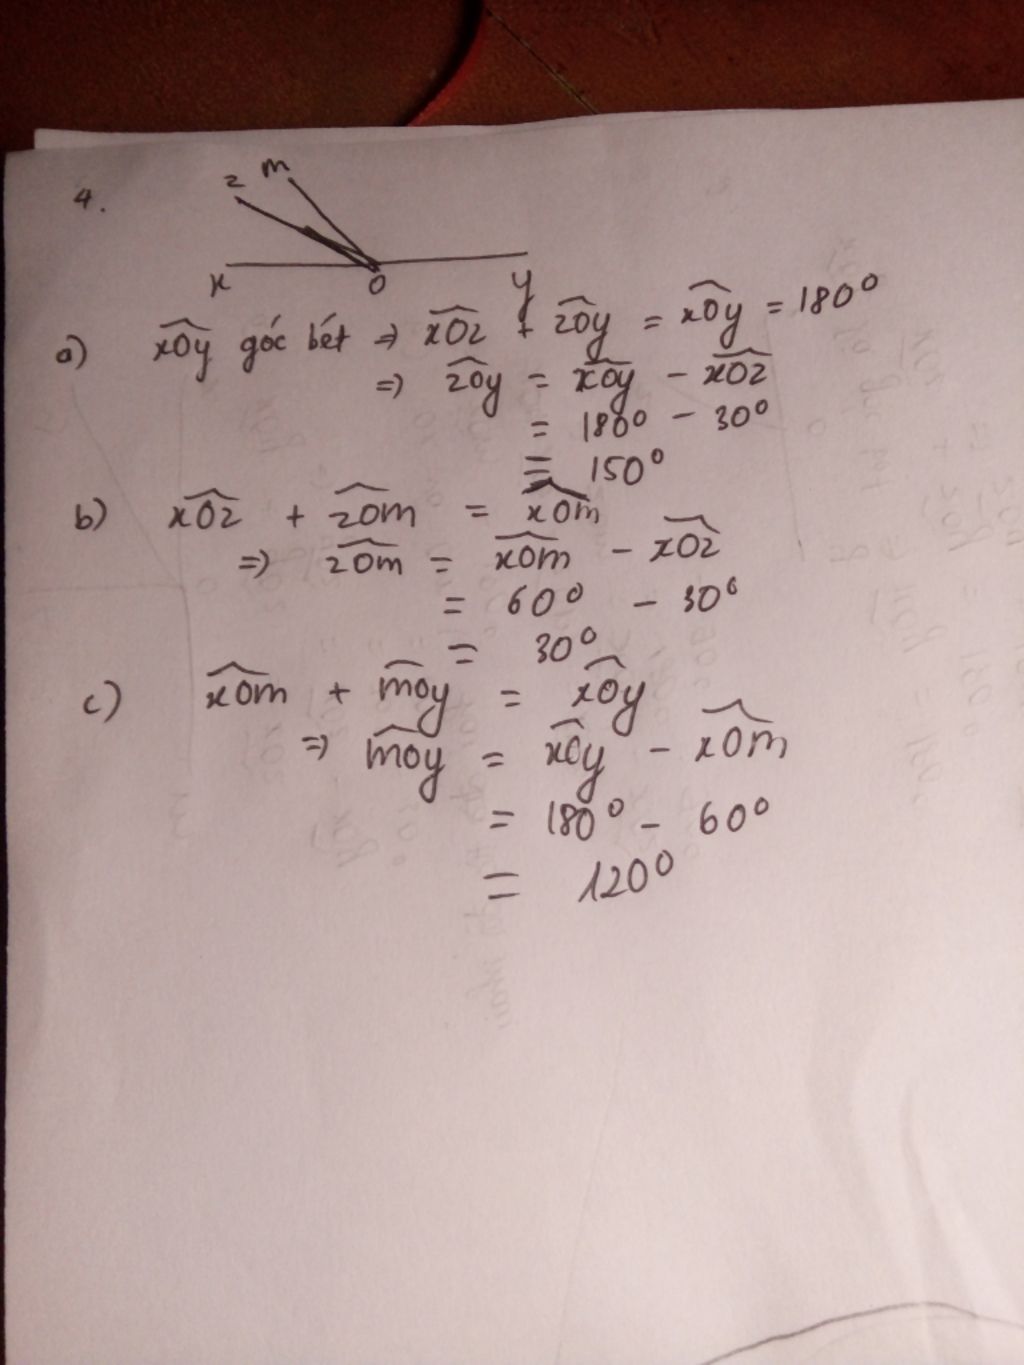 4.
z m
x O y
a) xOy góc bẹt => xOz + zOy = xOy = 180°
=> zOy = xOy - xOz
= 180° - 30°
= 150°
b) xOz + zOm = xOm
=> zOm = xOm - xOz
= 60° - 30°
= 30°
c) xOm + mOy = xOy
=> mOy = xOy - xOm
= 180° - 60°
= 120°